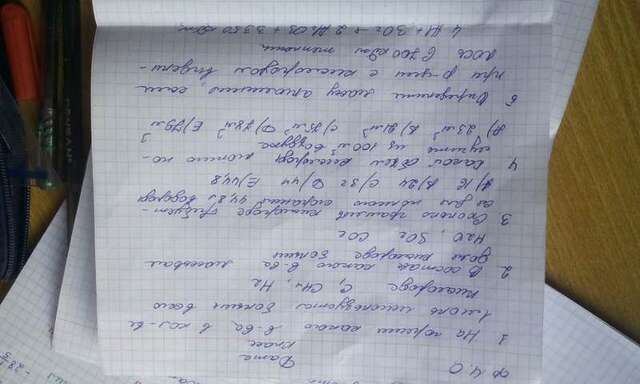 Ф.И.О
Дата
Класс
1 На горение какого в-ва в кол-ве
1 моль используется больше всего
кислорода C, CH4, H2
2 В составе какого в-ва массовая
доля кислорода больше
H2O, SO2 CO2
3 Сколько граммов кислорода требует-
ся для полного сгорания 44,8 л водорода
A) 16 B) 24 C) 32 D) 44 E) 44,8
4 Какой объем кислорода можно по-
лучить из 100 м3 воздуха ?
A) 23 м3 B) 21 м3 C) 75 м3 D) 78 м3 E) 79 м
5 Определите массу алюминия, если
при р-ции с кислородом выдели-
лось 6700 кДж теплоты
4 Al + 3O2 → 2 Al2O3 + 3350 кДж